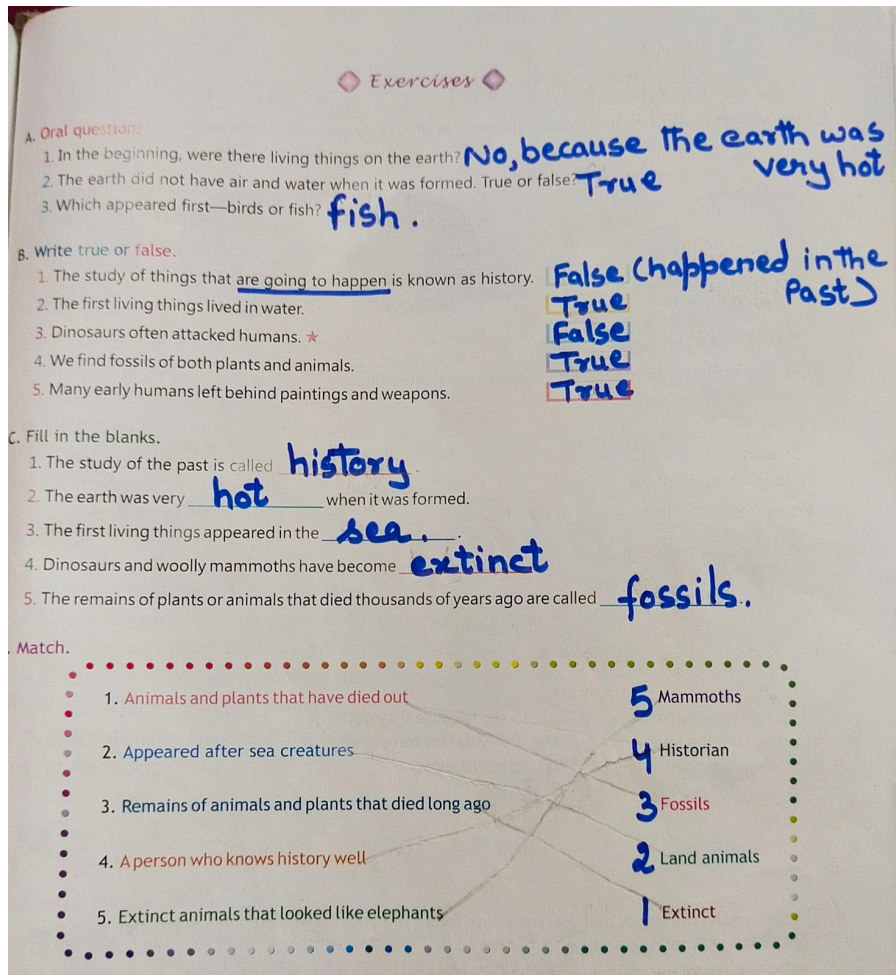 Exercises
A. Oral questions
1. In the beginning, were there living things on the earth? No, because the earth was very hot
2. The earth did not have air and water when it was formed. True or false? True
3. Which appeared first—birds or fish? fish.
B. Write true or false.
1. The study of things that are going to happen is known as history. False (happened in the Past)
2. The first living things lived in water. True
3. Dinosaurs often attacked humans. ★ False
4. We find fossils of both plants and animals. True
5. Many early humans left behind paintings and weapons. True
C. Fill in the blanks.
1. The study of the past is called history.
2. The earth was very hot when it was formed.
3. The first living things appeared in the sea.
4. Dinosaurs and woolly mammoths have become extinct
5. The remains of plants or animals that died thousands of years ago are called fossils.
. Match.
1. Animals and plants that have died out 5 Mammoths
2. Appeared after sea creatures 4 Historian
3. Remains of animals and plants that died long ago 3 Fossils
4. A person who knows history well 2 Land animals
5. Extinct animals that looked like elephants 1 Extinct